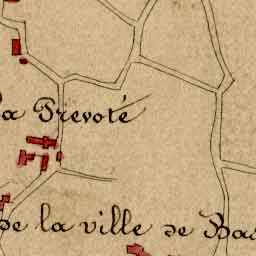 la Prevoté
de la ville de Ba